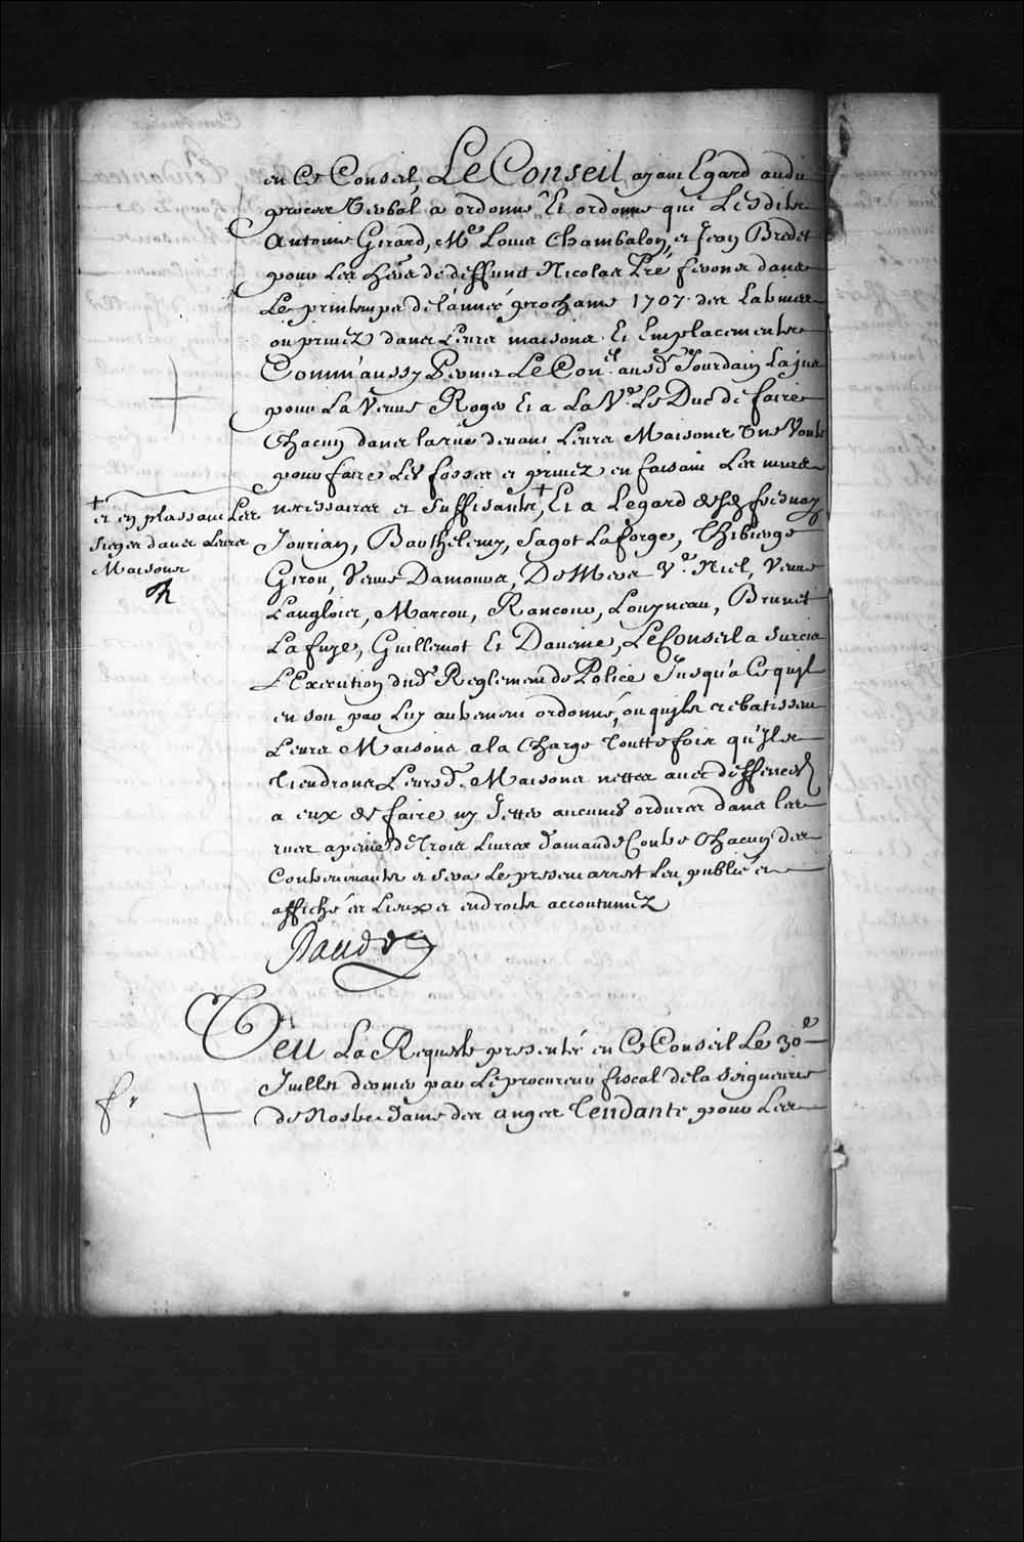 en Ce Conseil, Le Conseil, ayant Egard audit
procez Verbal a ordonné Et ordonne que Lesdits
Antoine Girard, Me Louis Chambalon, et Jean Bredet
pour Les hers de deffunct Nicolas Pré feront dans
Le printemps de l'année prochaine 1707 des Latrines
ou privez dans Leurs maisons Et Emplacements
Comm'aussy Permet Le Conel. aud. Sr Jourdain Lajus
pour La Veuve Roger Et a La Ve. Le Duc de faire
Chacun dans la rüe devant Leurs Maisons Une Voute
pour faire Les fosses et privez en faisant Les murs
necessaires et suffisants,+ Et a Legard desd. fresnay
+ et en plassant Les
sieges dans Leurs
Maisons
Jourian, Barthelemy, Sagot Laforge, Thibierge
Giron, Veuve Damours, DeMeva Ve. Niel, Veuve
Langlois, Marcou, Rancour, Louyneau, Brunet
Lafuye, Guillemot Et Daveine, Le Conseil a Surcis
L'Execution dud. Reglement de Police Jusqu'a Ce quil
en soit par Luy autrement ordonné, ou quils rebatissent
Leurs Maisons a la Charge Touttefois qu'Ils
Tiendront Leursd. Maisons nettes avec deffences
a eux de faire ny Jetter aucunes ordures dans les
rues a peine de Trois Livres d'amande Contre Chacun des
Contrevenants et sera Le present arrest Leu publié et
affiché es Lieux et endroits accoutumez
Raudot
Veu La Requeste presentée en Ce Conseil Le 30e
Juillet dernier par Le procureur fiscal de la Seigneurie
de Nostre Dame des anges Tendante pour Les